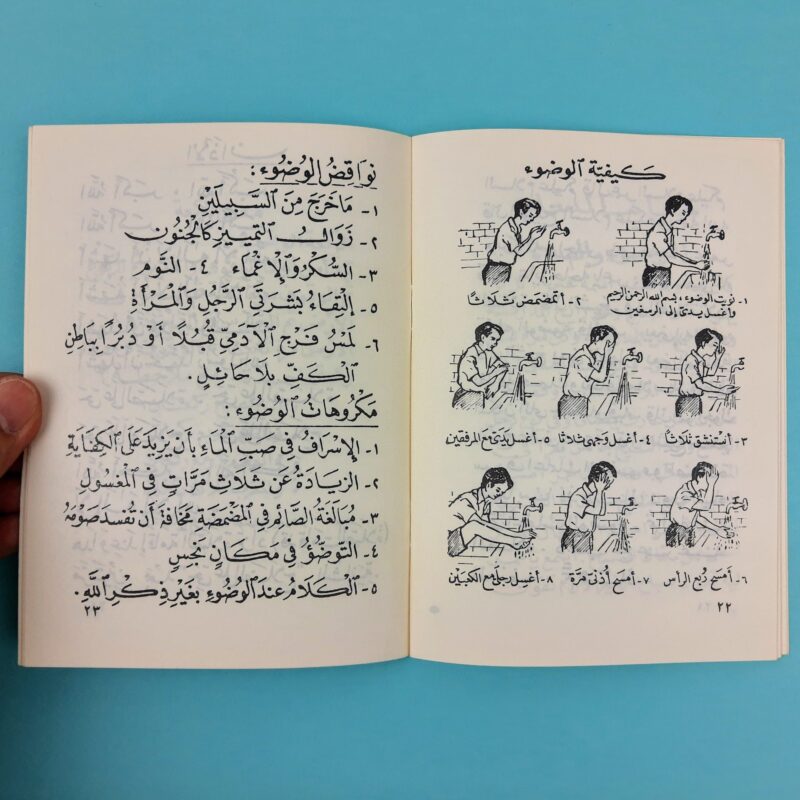 كيفية الوضوء
١- نويت الوضوء، بسم الله الرحمن الرحيم
واغسل يدىّ إلى الرسغين
٢- أتمضمض ثلاثًا
٣- أستنشق ثلاثًا
٤- أغسل وَجهى ثلاثا
٥- اغسل يَدَىّ مَع المرفقين
٦- أمسَح رُبع الرأس
٧- امسَح أُذنَىّ مَرّة
٨- أغسِل رجلىّ مع الكعبَين
٢٢
نوَاقضُ الوُضُوء:
١- مَا خَرَجَ مِنَ السَّبِيلَيْنِ
٢- زَوَالُ التمييز كَالْجُنُون
٣- السُّكرُ وَالْإِغْمَاء ٤- النَّوم
٥- الْتِقَاءُ بَشَرَتَيِ الرَّجُلِ وَالْمَرْأَةِ
٦- لَمْسُ فَرْجِ الْآدَمِيِّ قُبُلًا أوْ دُبُرًا بِبَاطِنِ
الكَفِّ بِلَا حَائِلٍ.
مَكرُوهَاتُ الوُضُوء:
١- الإِسْرَافُ فِي صَبِّ الْمَاءِ بأَن يَزيدَ عَلَى الكِفَايَةِ
٢- الزيَادَةُ عَن ثَلَاثِ مَرَّاتٍ فِي الْمَغْسُولِ
٣- مُبَالَغَةُ الصَّائِمِ في الْمَضْمَضَةِ مَخَافَةَ أَن تُفسِدَ صَوْمَهُ
٤- التَّوَضُّؤُ فِي مَكَانٍ نَجِسٍ
٥- الْكَلَامُ عندَ الْوُضُوءِ بغَيْرِ ذِكْرِ اللَّهِ.
٢٣